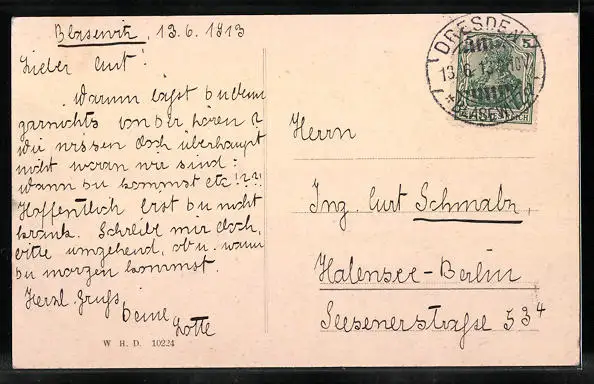 Blasewitz, 13.6.1913
Lieber Curt!
Warum läßt du denn
garnichts von dir hören?
Wir wissen doch überhaupt
nicht woran wir sind:
Wann du kommst etc!??!
Hoffentlich bist du nicht
krank. Schreibe mir doch,
bitte umgehend, ob u. wann
du morgen kommst.
Herzl. Gruß,
Deine
Lotte
W. H. D. 10224
DRESDEN
13.6.13
BLASEWITZ
5
Herrn
Ing. Curt Schmalz,
Halensee-Berlin
Seesenerstraße 53⁴